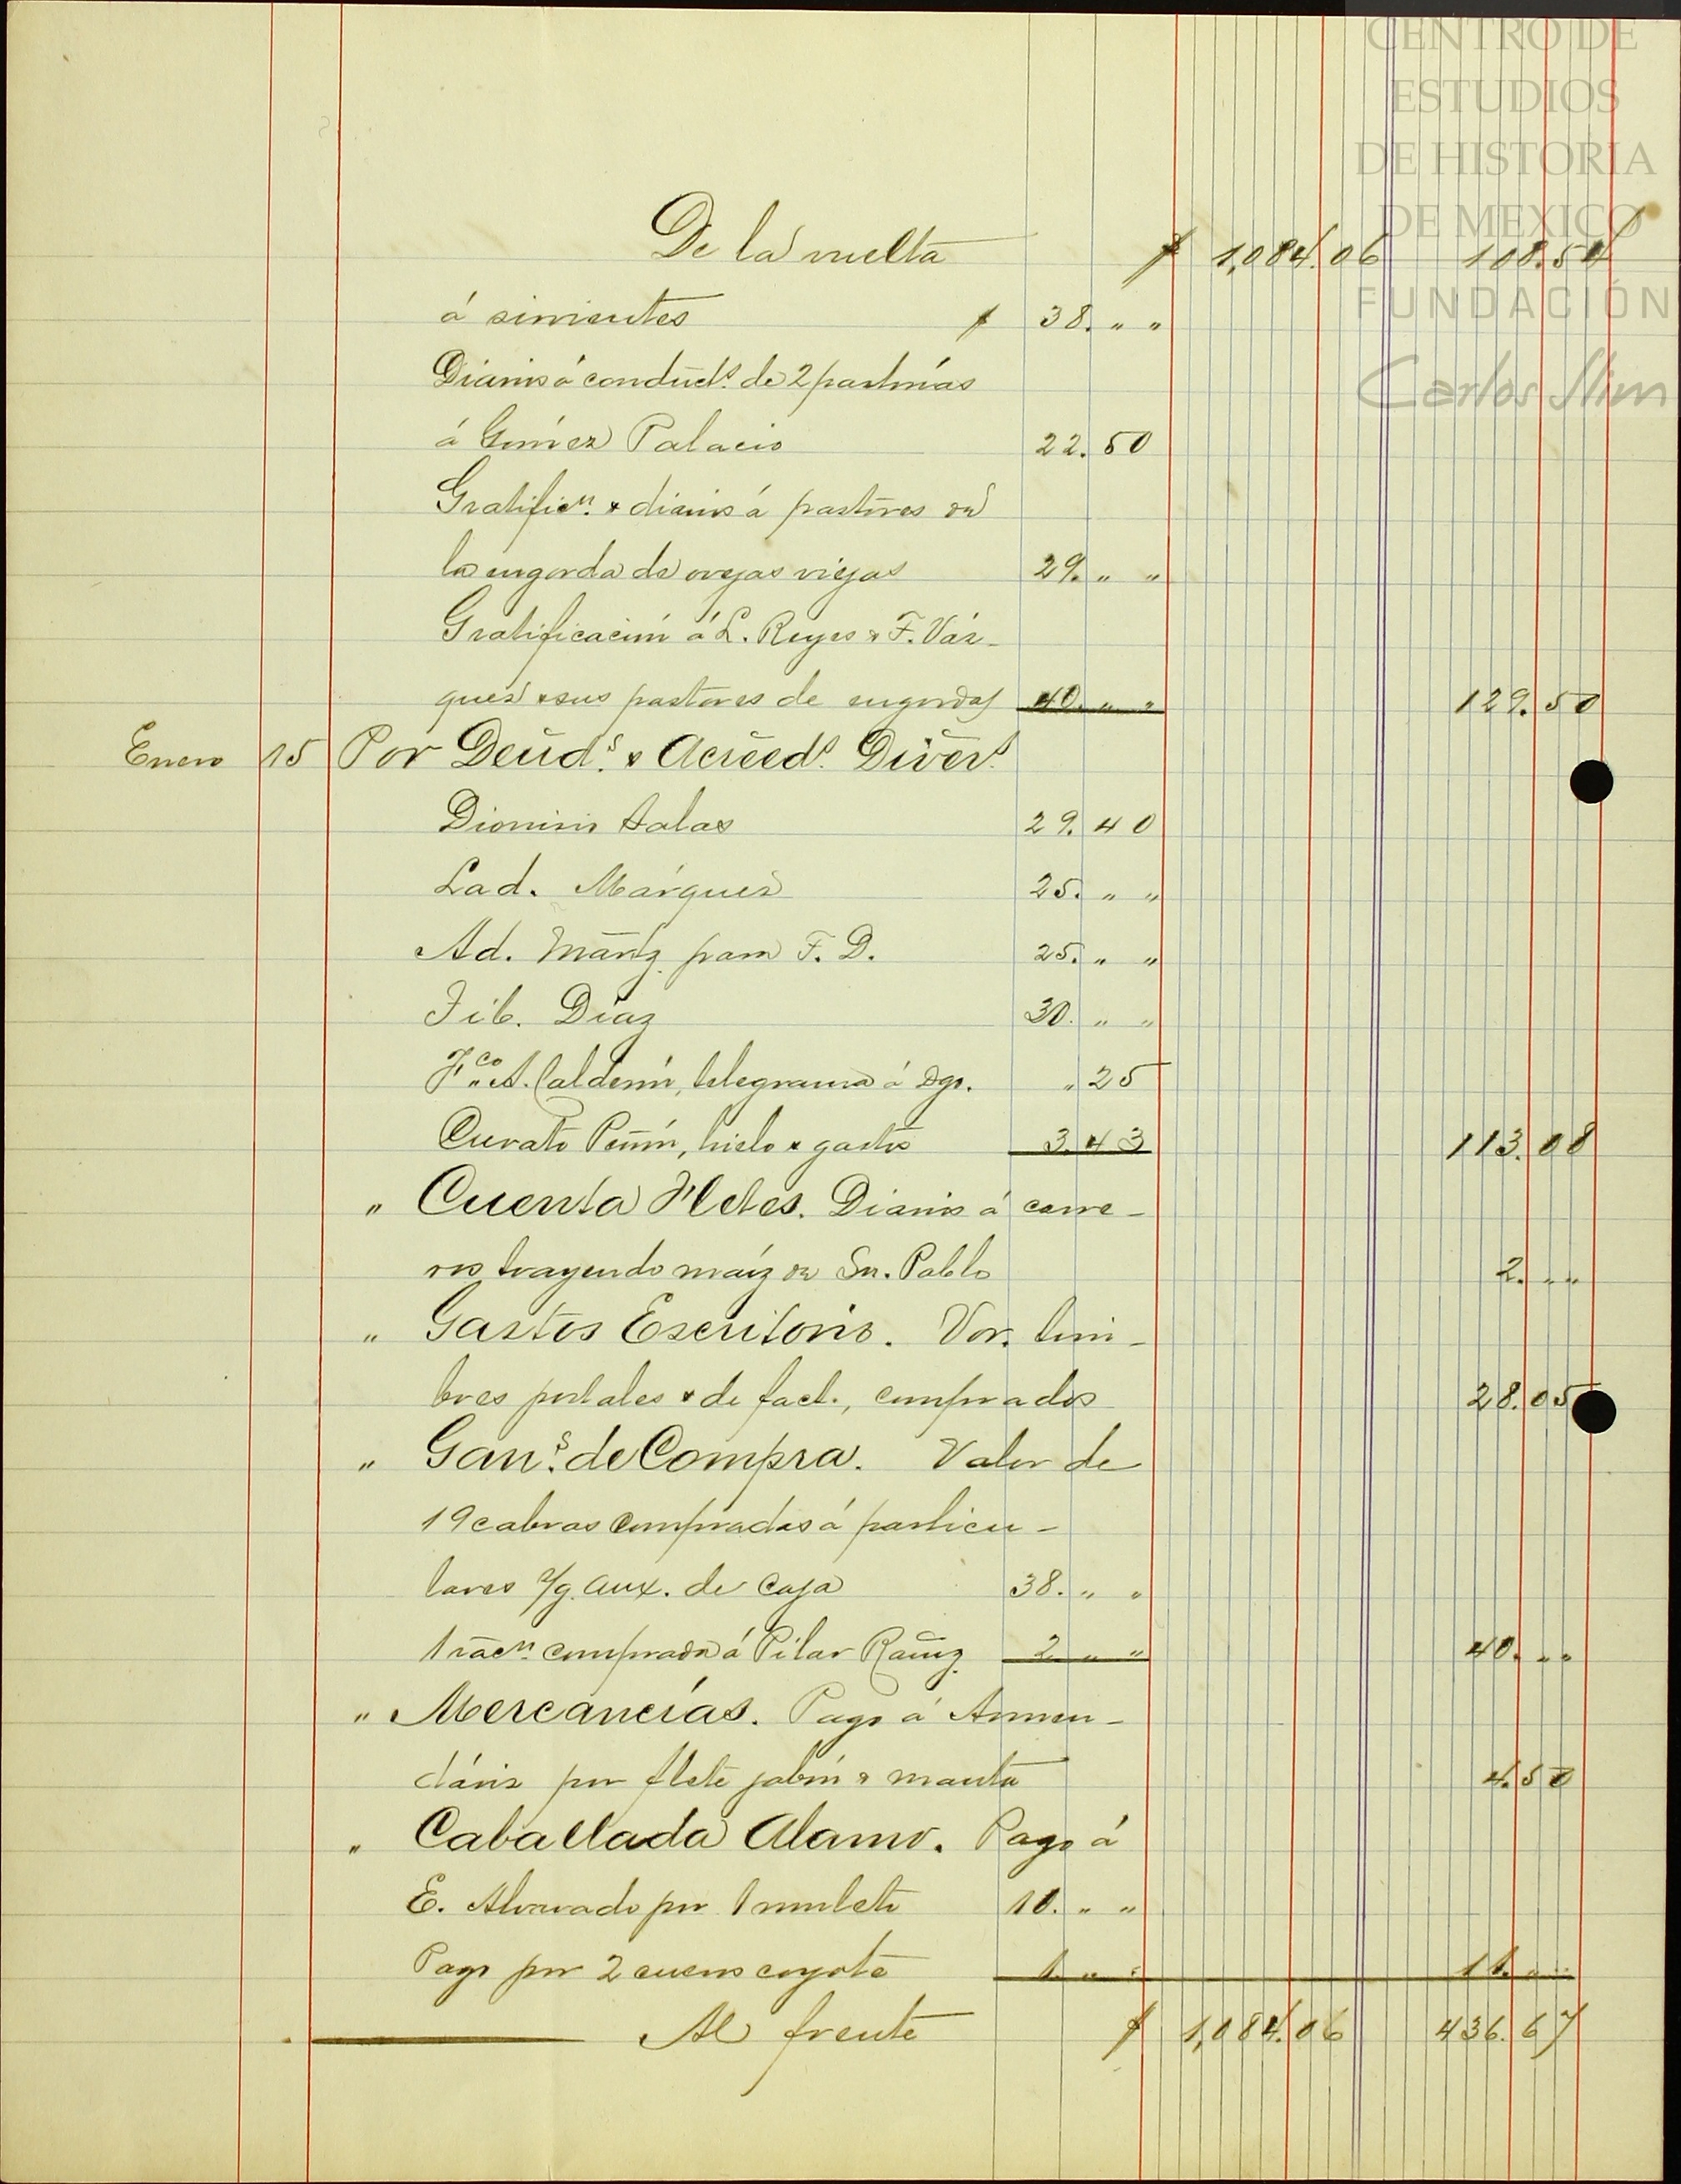 CENTRO DE
ESTUDIOS
DE HISTORIA
DE MEXICO
FUNDACIÓN
Carlos Slim
De la vuelta $ 1,084.06 108.54
á simientes $ 38. " "
Diarios á conduct.s de 2 pastorías
á Gómez Palacio 22.50
Gratific.n & diarios á pastores de
la engorda de ovejas viejas 29. " "
Gratificación á L. Reyes & F. Váz-
quez & sus pastores de engordas 40. " " 129.50
Enero 15 Por Deud.s & Acreed.s Divers.
Dionisio Salas 29.40
Lad. Márquez 25. " "
Ad. Martz. para F. D. 25. " "
Tib. Díaz 30. " "
F.co A. Calderón, telegrama á Dgo. " 25
Curato Peñón, hielo & gastos 3.43 113.08
" Cuenta Fletes. Diarios á carre-
ros trayendo maíz de Sn. Pablo 2. " "
" Gastos Escritorio. Vor. tim-
bres postales & de fact., comprados 28.05
" Gan.s de Compra. Valor de
19 cabras compradas á particu-
lares s/g. aux. de Caja 38. " "
1 rac.n comprada á Pilar Ramz. 2. " " 40. " "
" Mercancías. Pago á Armen-
dáriz por flete jabón & manta 4.50
" Caballada Alamo. Pago á
E. Alvarado por 1 muleto 10. " "
Pago por 2 cueros coyote 1. " " 11. " "
Al frente $ 1,084.06 436.67